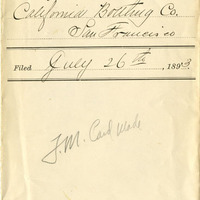 California Bottling Co.
San Francisco
Filed July 26th, 1893.
T.M. Card Made